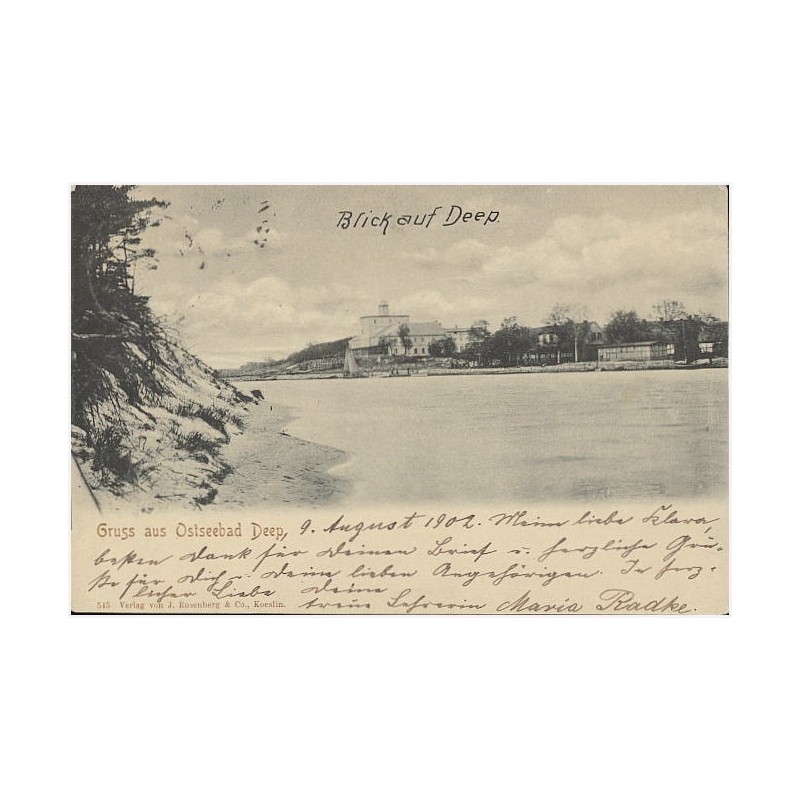 Blick auf Deep.
Gruss aus Ostseebad Deep, 9. August 1902. Meine liebe Klara,
besten Dank für Deinen Brief u. herzliche Grü-
ße für Dich u. Deine lieben Angehörigen. In herz-
licher Liebe Deine
545 Verlag von J. Rosenberg & Co., Koeslin. treue Lehrerin Maria Radke.